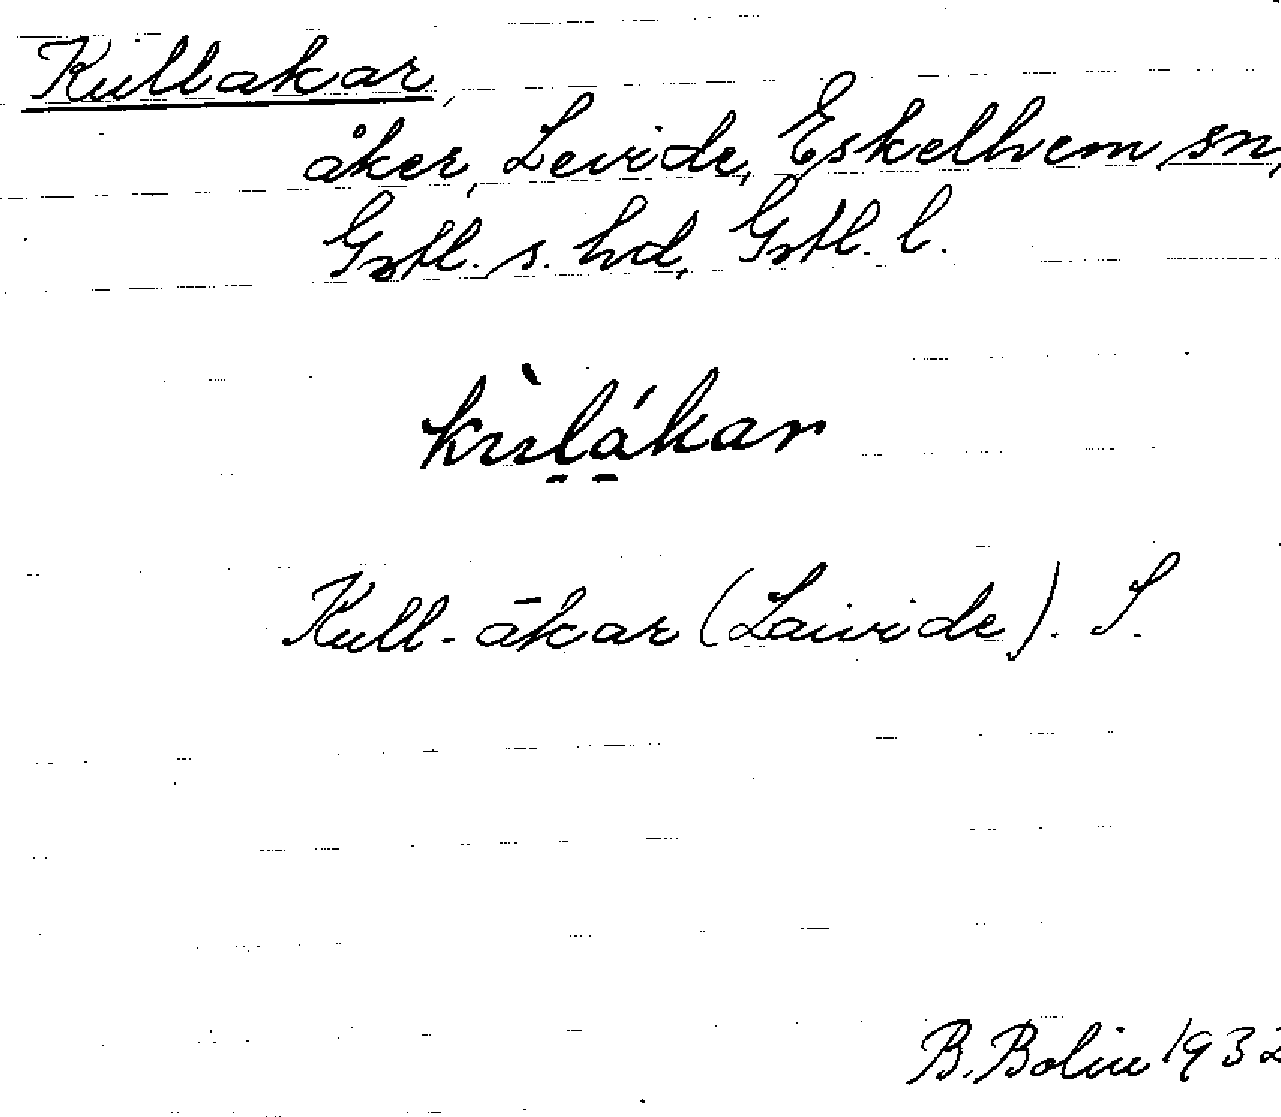 Kullakar,
åker, Levide, Eskelhem sn,
Gotl. s. hd, Gotl. l.
kùl̠á̠kar
Kull-ākar (Laivide). S.
B. Bolin 1932